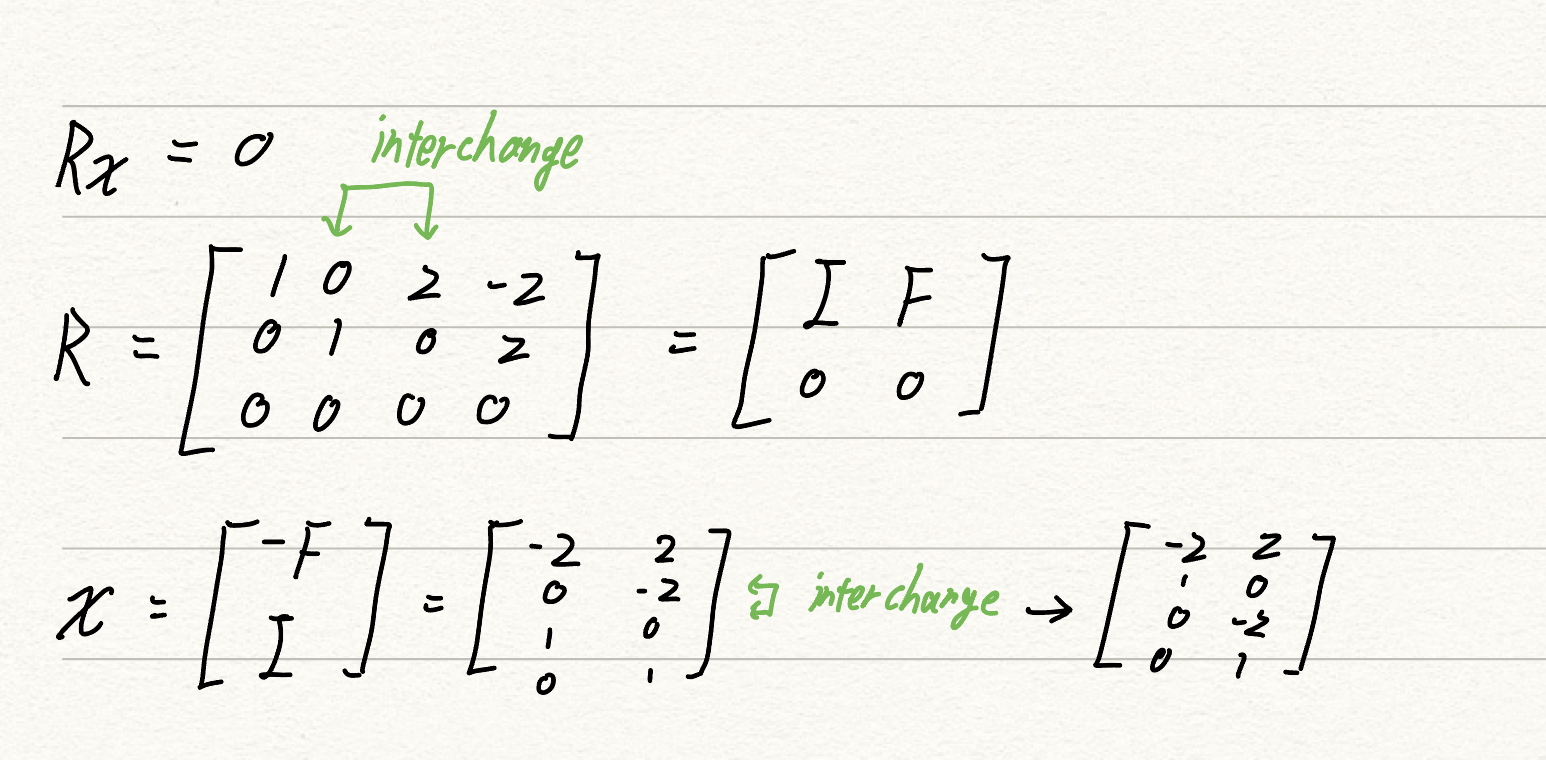 Rx = 0 interchange
R = [ 1 0 2 -2 ; 0 1 0 2 ; 0 0 0 0 ] = [ I F ; 0 0 ]
x = [ -F ; I ] = [ -2 2 ; 0 -2 ; 1 0 ; 0 1 ] interchange → [ -2 2 ; 1 0 ; 0 -2 ; 0 1 ]